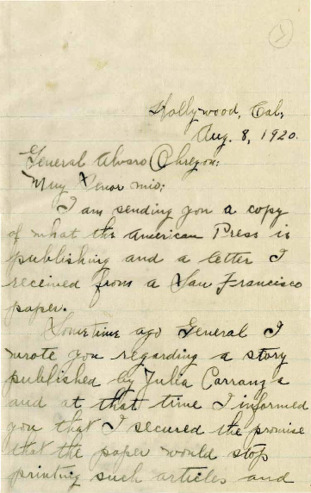 Hollywood, Cal,
Aug. 8, 1920.
General Alvaro Obregon:
Muy Senor mio:
I am sending you a copy
of what the American Press is
publishing and a letter I
received from a San Francisco
paper.
Sometime ago General I
wrote you regarding a story
published by Julia Carranza
and at that time I informed
you that I secured the promise
that the paper would stop
printing such articles and